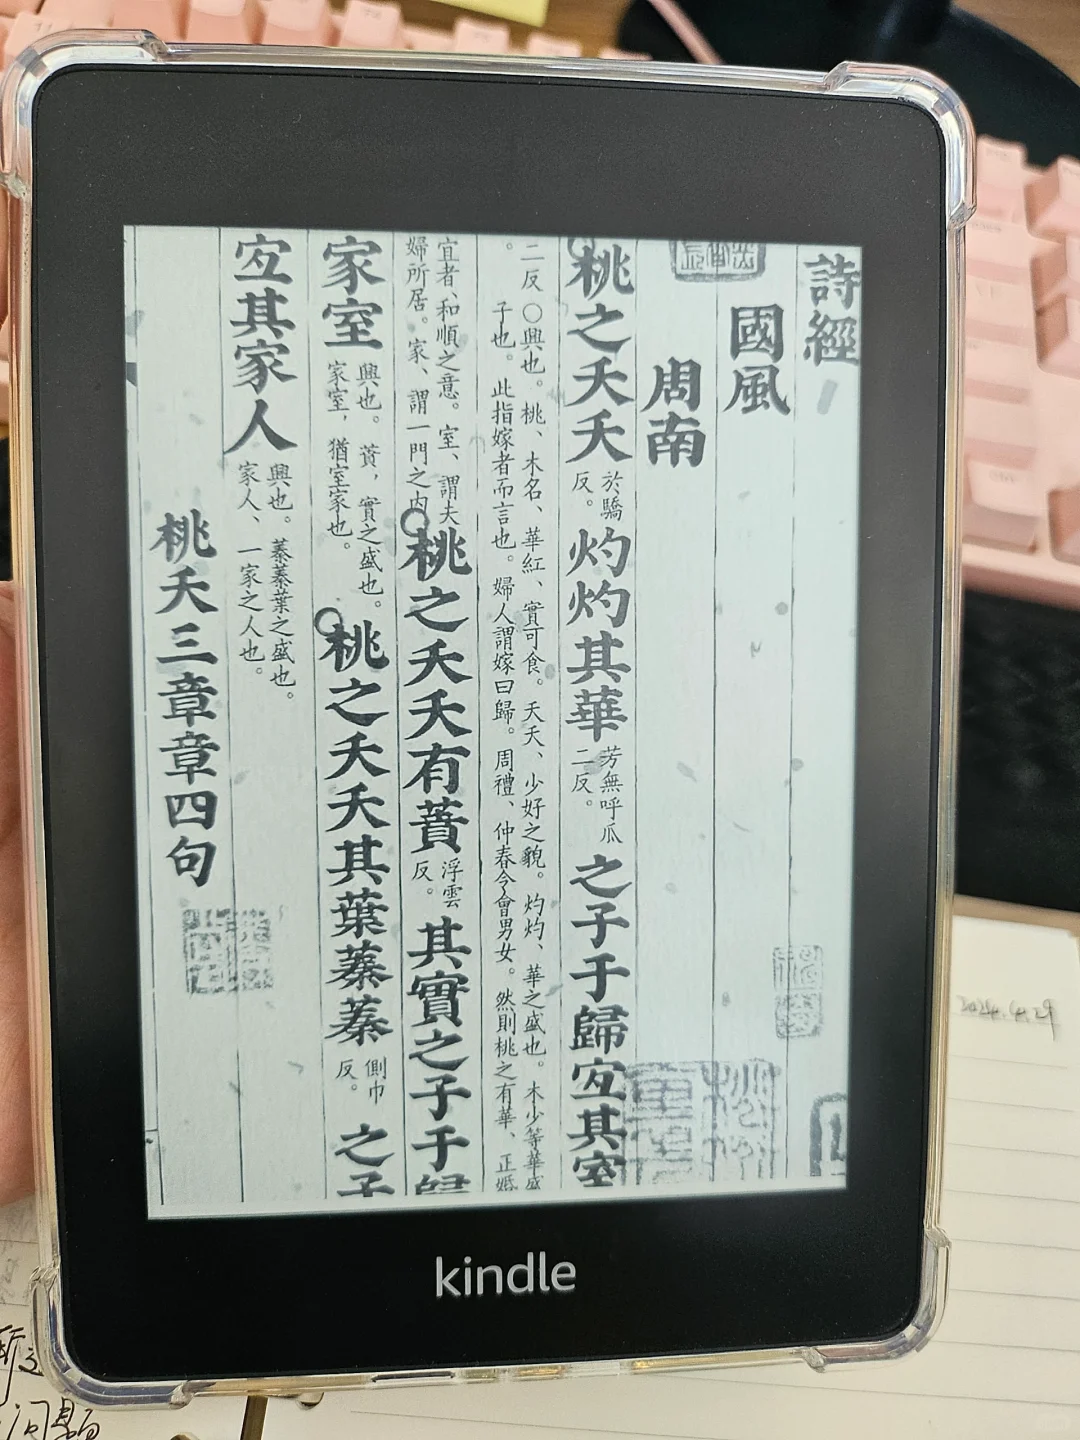 詩經
國風
周南
桃之夭夭於驕反。灼灼其華芳無呼瓜二反。之子于歸宜其室
二反○興也。桃、木名、華紅、實可食。夭夭、少好之貌。灼灼、華之盛也。木少等華盛
。子也。此指嫁者而言也。婦人謂嫁曰歸。周禮、仲春令會男女。然則桃之有華、正婚
宜者、和順之意。室、謂夫婦所居。家、謂一門之内
桃之夭夭有蕡浮雲反。其實之子于歸
家室興也。蕡，實之盛也。家室，猶室家也。
桃之夭夭其葉蓁蓁側巾反。之子
宜其家人興也。蓁蓁葉之盛也。家人、一家之人也。
桃夭三章章四句
kindle
2024.6.29
问题